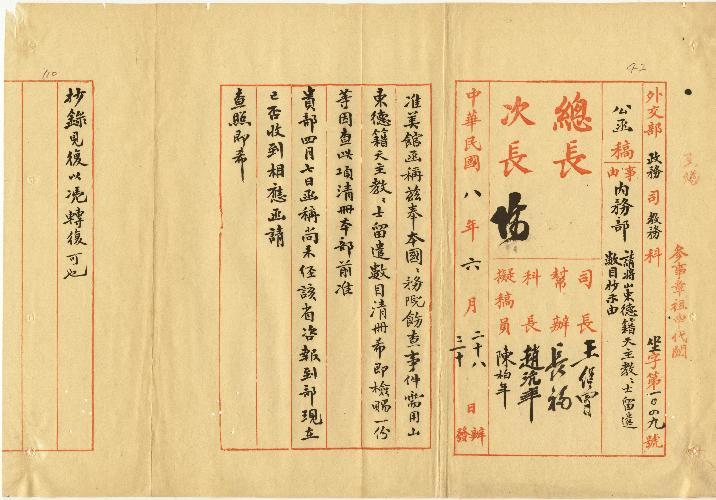 42
110
外交部 政務 司 教務 科 坐字第一〇〇四九號
參事章祖申代閱
公函 稿
事由
內務部
請將山東德籍天主教〻士留遣
數目抄示由
總長
次長
司長 王
幫辦 長福
科長 趙沆年
擬稿員 陳柏年
中華民國 八 年 六 月 二十八 日 辦
三十 發
准美館函稱茲奉本國〻務院飭查事件需用山
東德籍天主教〻士留遣數目清冊希即檢賜一份
等因查此項清冊本部前准
貴部四月七日函稱尚未經該省咨報到部現在
已否收到相應函請
查照即希
抄錄見復以憑轉復可也